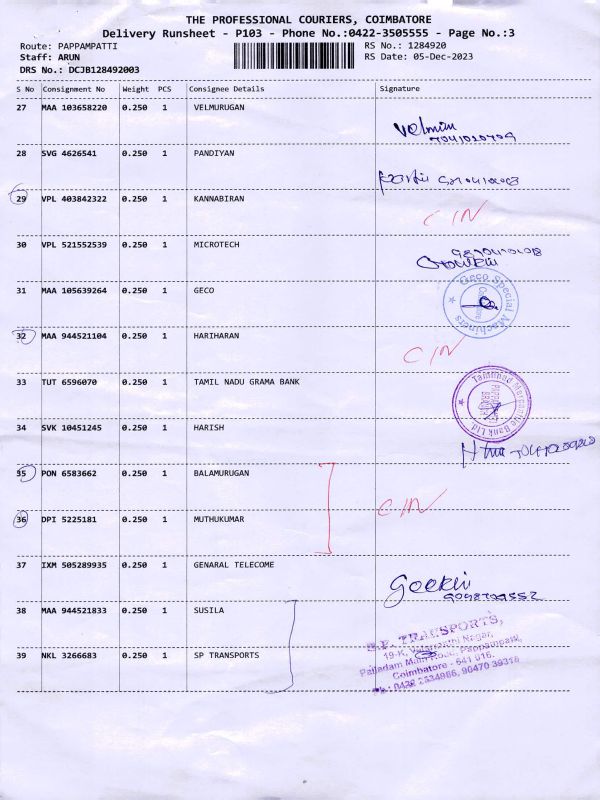 THE PROFESSIONAL COURIERS, COIMBATORE
Delivery Runsheet - P103 - Phone No.:0422-3505555 - Page No.:3
Route: PAPPAMPATTI
RS No.: 1284920
Staff: ARUN
RS Date: 05-Dec-2023
DRS No.: DCJB128492003
S No Consignment No Weight PCS Consignee Details Signature
27 MAA 103658220 0.250 1 VELMURUGAN
28 SVG 4626541 0.250 1 PANDIYAN
29 VPL 403842322 0.250 1 KANNABIRAN CIN
30 VPL 521552539 0.250 1 MICROTECH
31 MAA 105639264 0.250 1 GECO
Geco Special Machines
Coimbatore
32 MAA 944521104 0.250 1 HARIHARAN CIN
33 TUT 6596070 0.250 1 TAMIL NADU GRAMA BANK
Tamilnad Mercantile Bank Ltd.
34 SVK 10451245 0.250 1 HARISH
35 PON 6583662 0.250 1 BALAMURUGAN
36 DPI 5225181 0.250 1 MUTHUKUMAR CIN
37 IXM 505289935 0.250 1 GENARAL TELECOME
38 MAA 944521833 0.250 1 SUSILA
39 NKL 3266683 0.250 1 SP TRANSPORTS
S.P. TRANSPORTS,
Nagar,
Palladam Main Road, Pappampatti,
Coimbatore - 641 016.